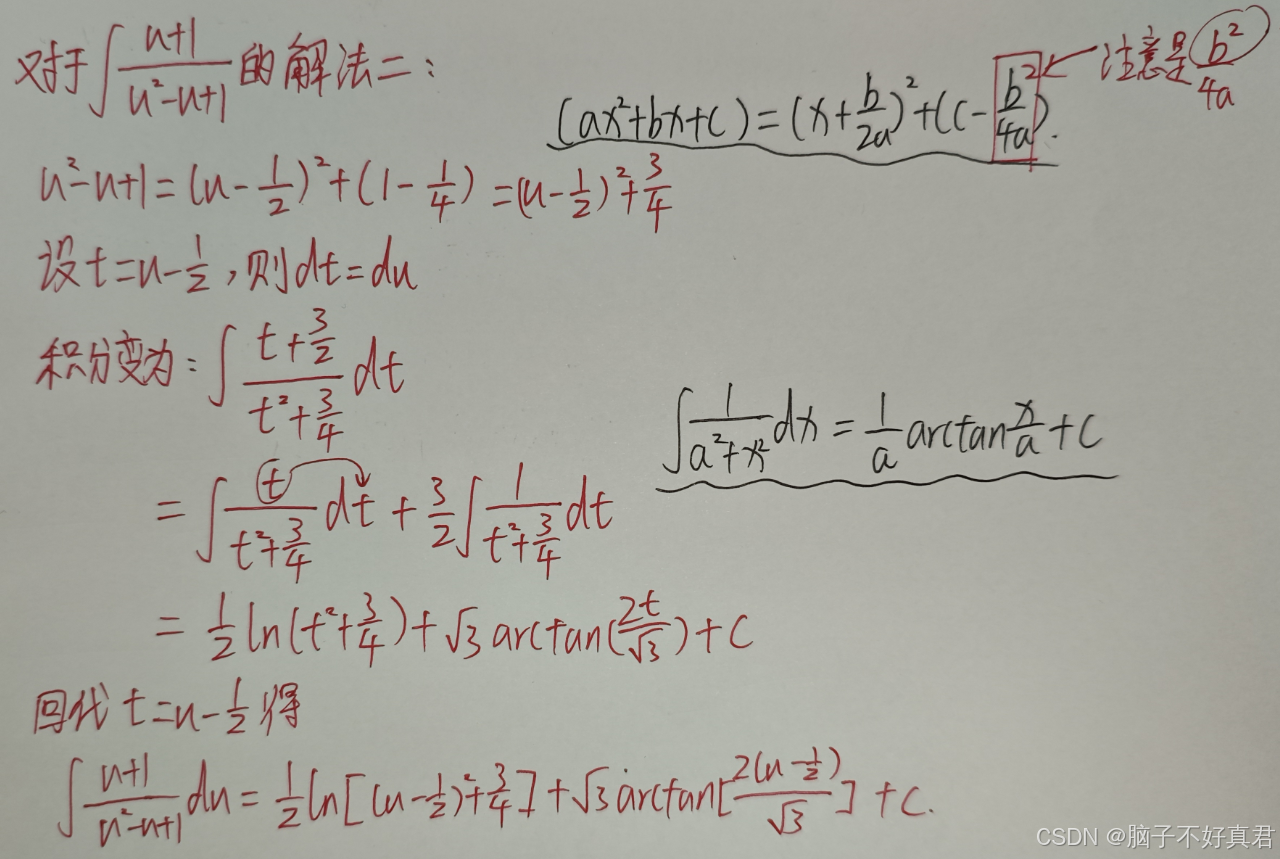 对于∫(u+1)/(u²-u+1)的解法二：
(ax²+bx+c)=(x+b/2a)²+(c-b²/4a).
注意是b²/4a
u²-u+1=(u-1/2)²+(1-1/4)=(u-1/2)²+3/4
设t=u-1/2，则dt=du
积分变为：∫(t+3/2)/(t²+3/4)dt
∫1/(a²+x²)dx=1/a arctan x/a+C
=∫t/(t²+3/4)dt+3/2∫1/(t²+3/4)dt
=1/2 ln(t²+3/4)+√3 arctan(2t/√3)+C
回代t=u-1/2得
∫(u+1)/(u²-u+1)du=1/2 ln[(u-1/2)²+3/4]+√3 arctan[2(u-1/2)/√3]+C.
CSDN @脑子不好真君